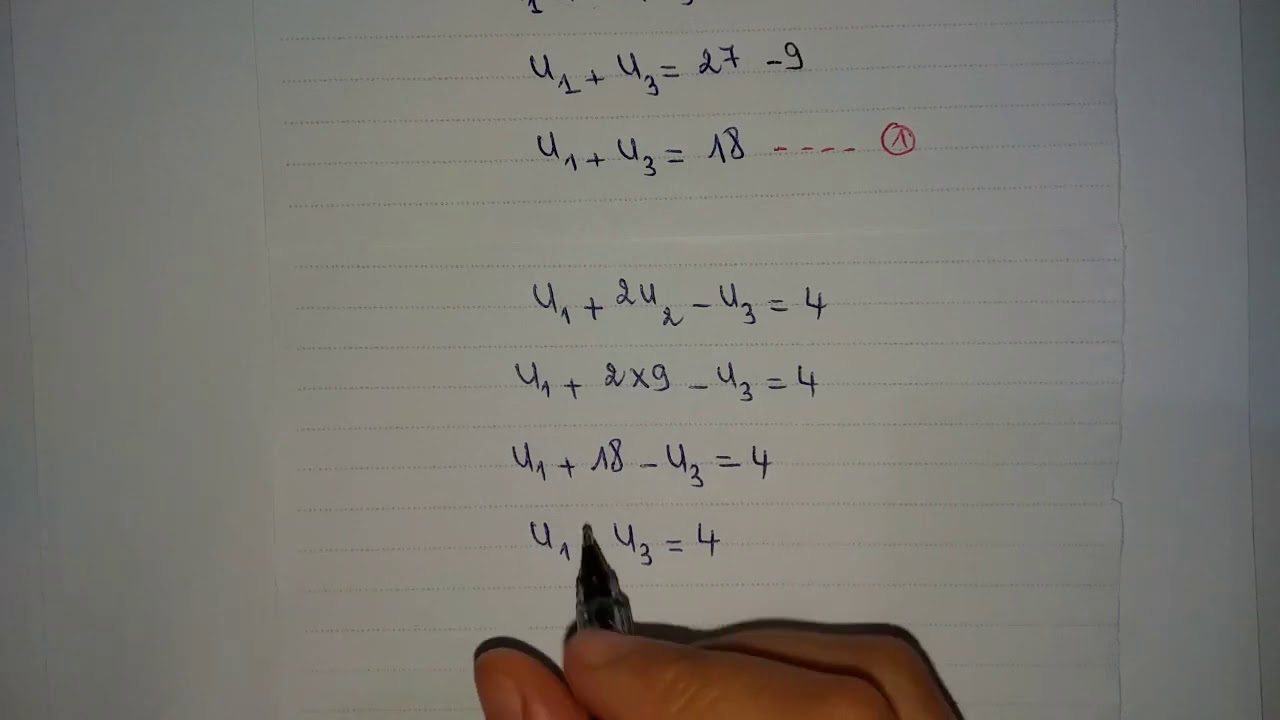 U₁ + U₃ = 27 - 9
U₁ + U₃ = 18 ---- ①
U₁ + 2U₂ - U₃ = 4
U₁ + 2×9 - U₃ = 4
U₁ + 18 - U₃ = 4
U₁ U₃ = 4